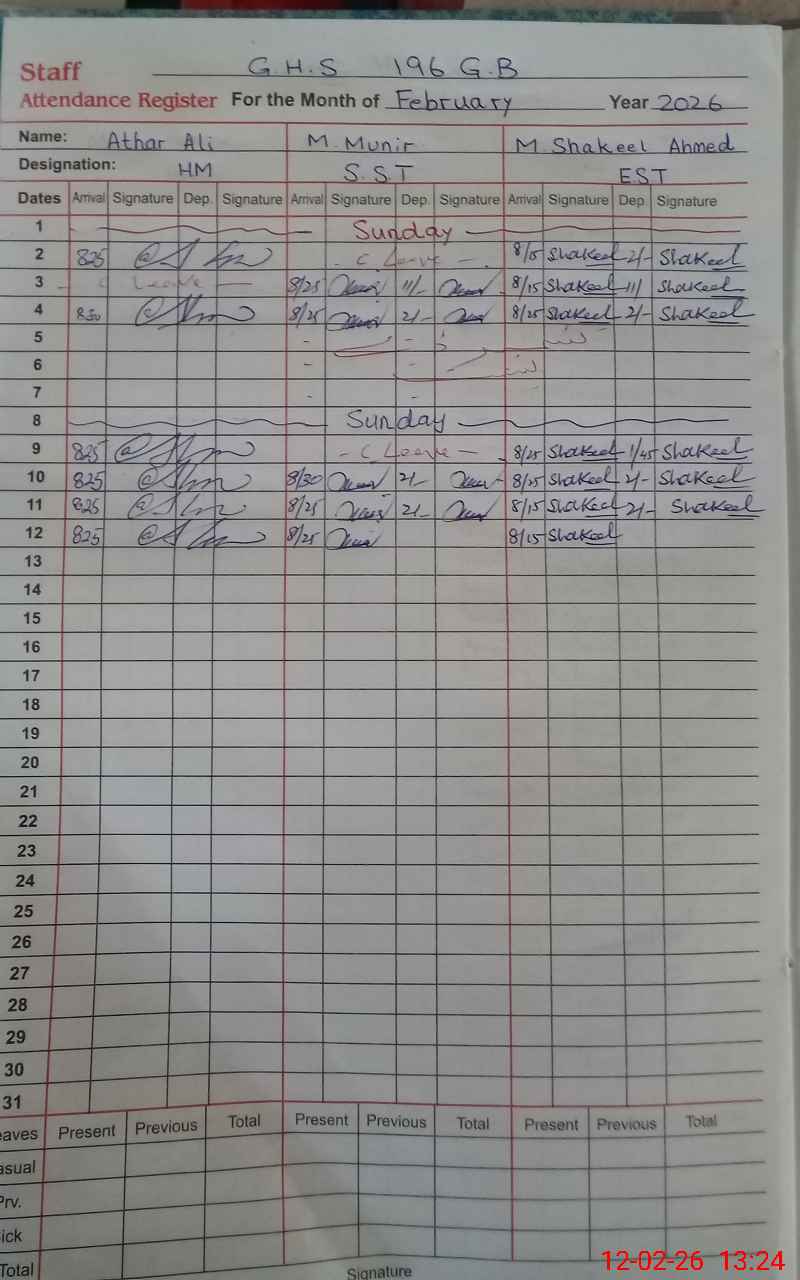 Staff G.H.S 196 G.B
Attendance Register For the Month of February Year 2026
Name: Athar Ali M. Munir M. Shakeel Ahmed
Designation: HM S.S.T EST
Dates Arrival Signature Dep. Signature Arrival Signature Dep. Signature Arrival Signature Dep. Signature
1 Sunday
2 825 - C Leave - 8/15 Shakeel 2/- Shakeel
3 C Leave 8/25 11/- 8/15 Shakeel 11/ Shakeel
4 850 8/25 2/- 8/25 Shakeel 2/- Shakeel
5 - -
6 - -
7 - -
8 Sunday
9 825 - C Leave - 8/25 Shakeel 1/45 Shakeel
10 825 8/30 2/- 8/25 Shakeel 2/- Shakeel
11 825 8/25 2/- 8/15 Shakeel 2/- Shakeel
12 825 8/25 8/15 Shakeel
13
14
15
16
17
18
19
20
21
22
23
24
25
26
27
28
29
30
31
eaves Present Previous Total Present Previous Total Present Previous Total
asual
Prv.
ick
Total
Signature
12-02-26 13:24